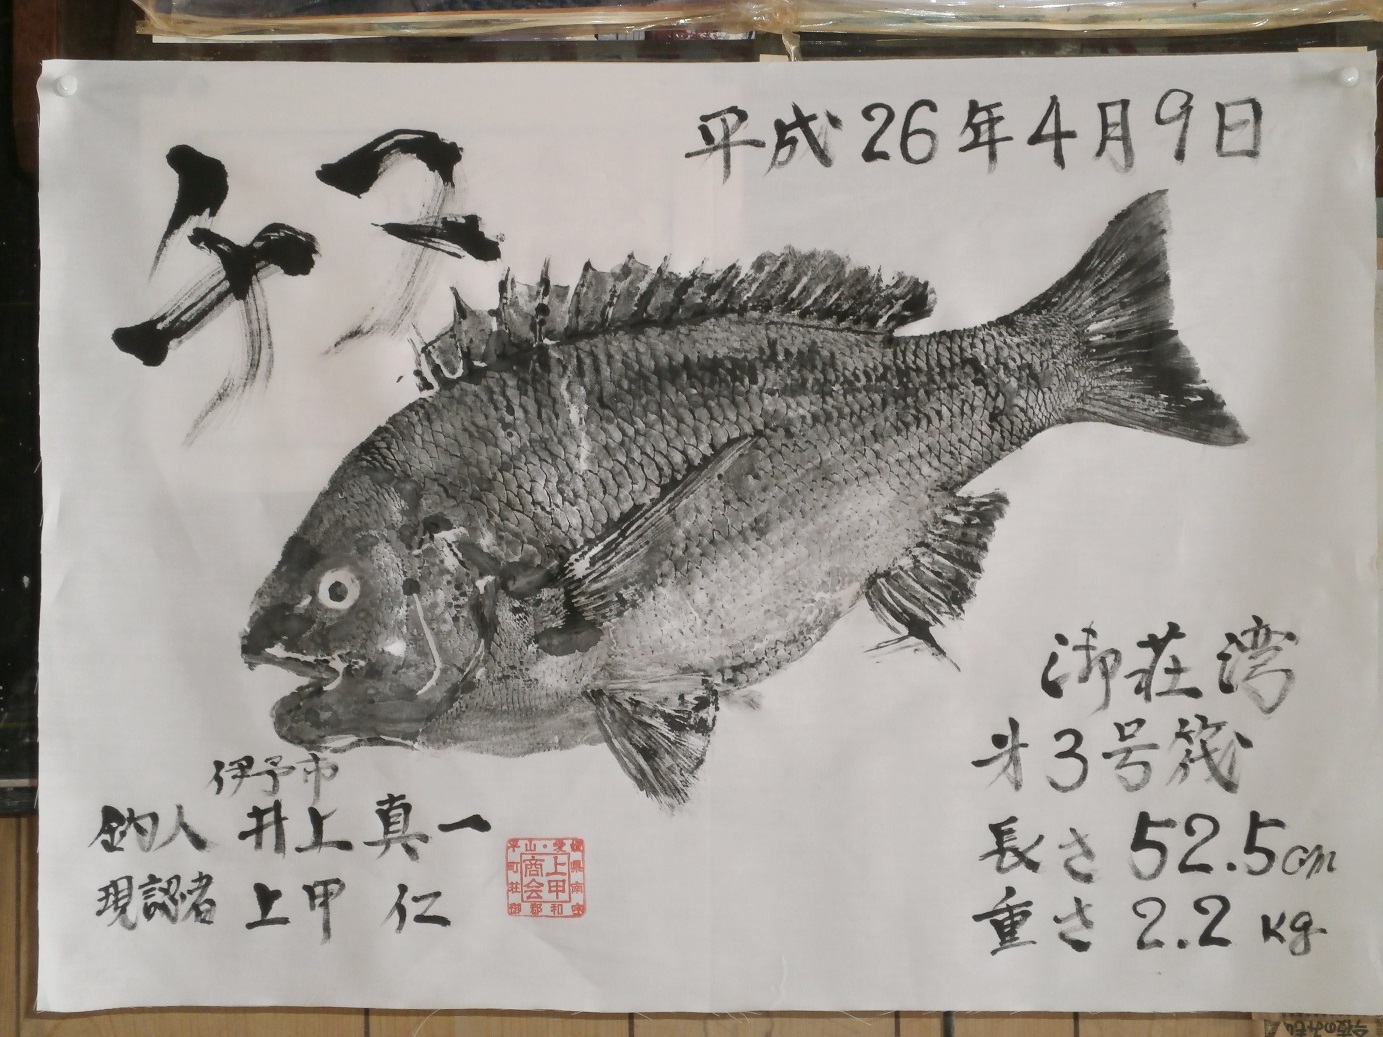 平成26年4月9日
チヌ
御荘湾
第3号筏
長さ 52.5cm
重さ 2.2kg
伊予市
釣人 井上真一
現認者 上甲 仁
愛媛県南宇和郡御荘町平山・
上甲商会